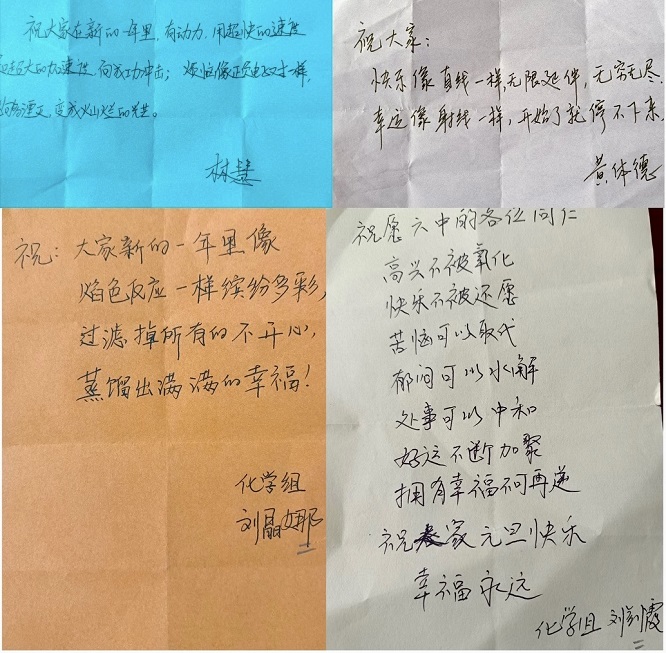 祝大家在新的一年里,有动力,用超快的速度
超大的加速度,向成功冲击;烦恼像正负电子对一样,
湮灭,变成灿烂的光芒。
林慧
祝大家:
快乐像直线一样,无限延伸,无穷无尽.
幸运像射线一样,开始了就停不下来.
黄体德
祝:大家新的一年里像
焰色反应一样缤纷多彩,
过滤掉所有的不开心,
蒸馏出满满的幸福!
化学组
刘晶娜
祝愿六中的各位同仁
高兴不被氧化
快乐不被还愿
苦恼可以取代
郁闷可以水解
处事可以中和
好运不断加聚
拥有幸福不可再逆
祝大家元旦快乐
幸福永远
化学组 刘霞